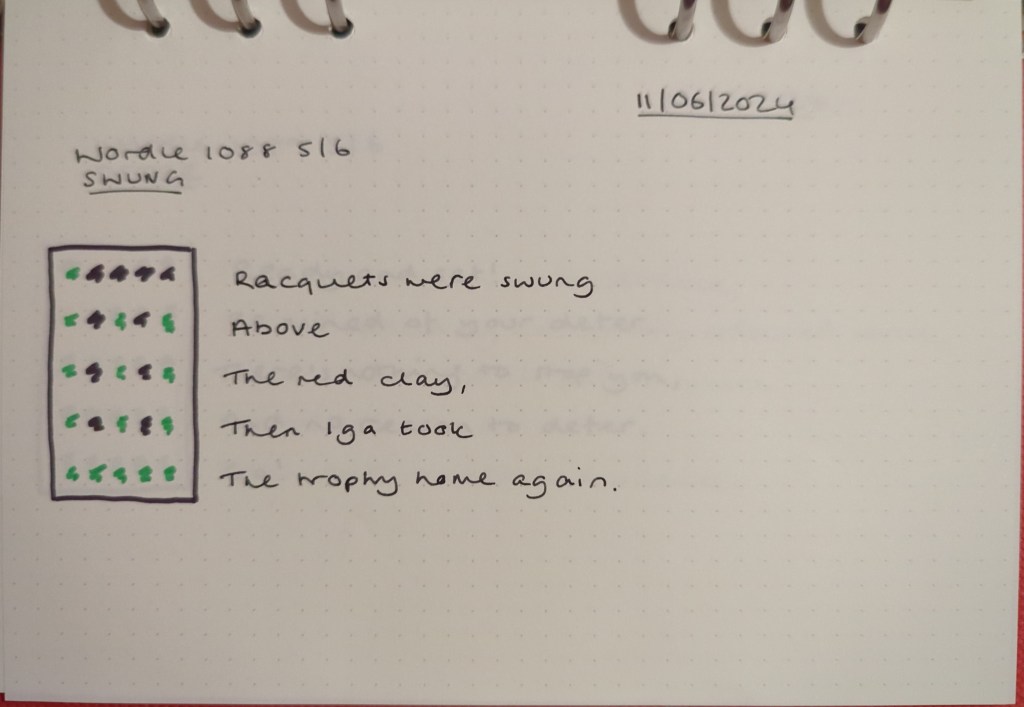 11/06/2024
Wordle 1088 5/6
SWUNG
Racquets were swung
Above
The red clay,
Then Iga took
The trophy home again.